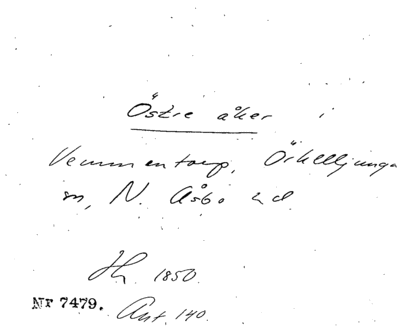 Östre åker i
Vemmentorp, Örkelljunga
sn, N. Åsbo hd
Hy 1850.
Nr 7479. Ant. 140.